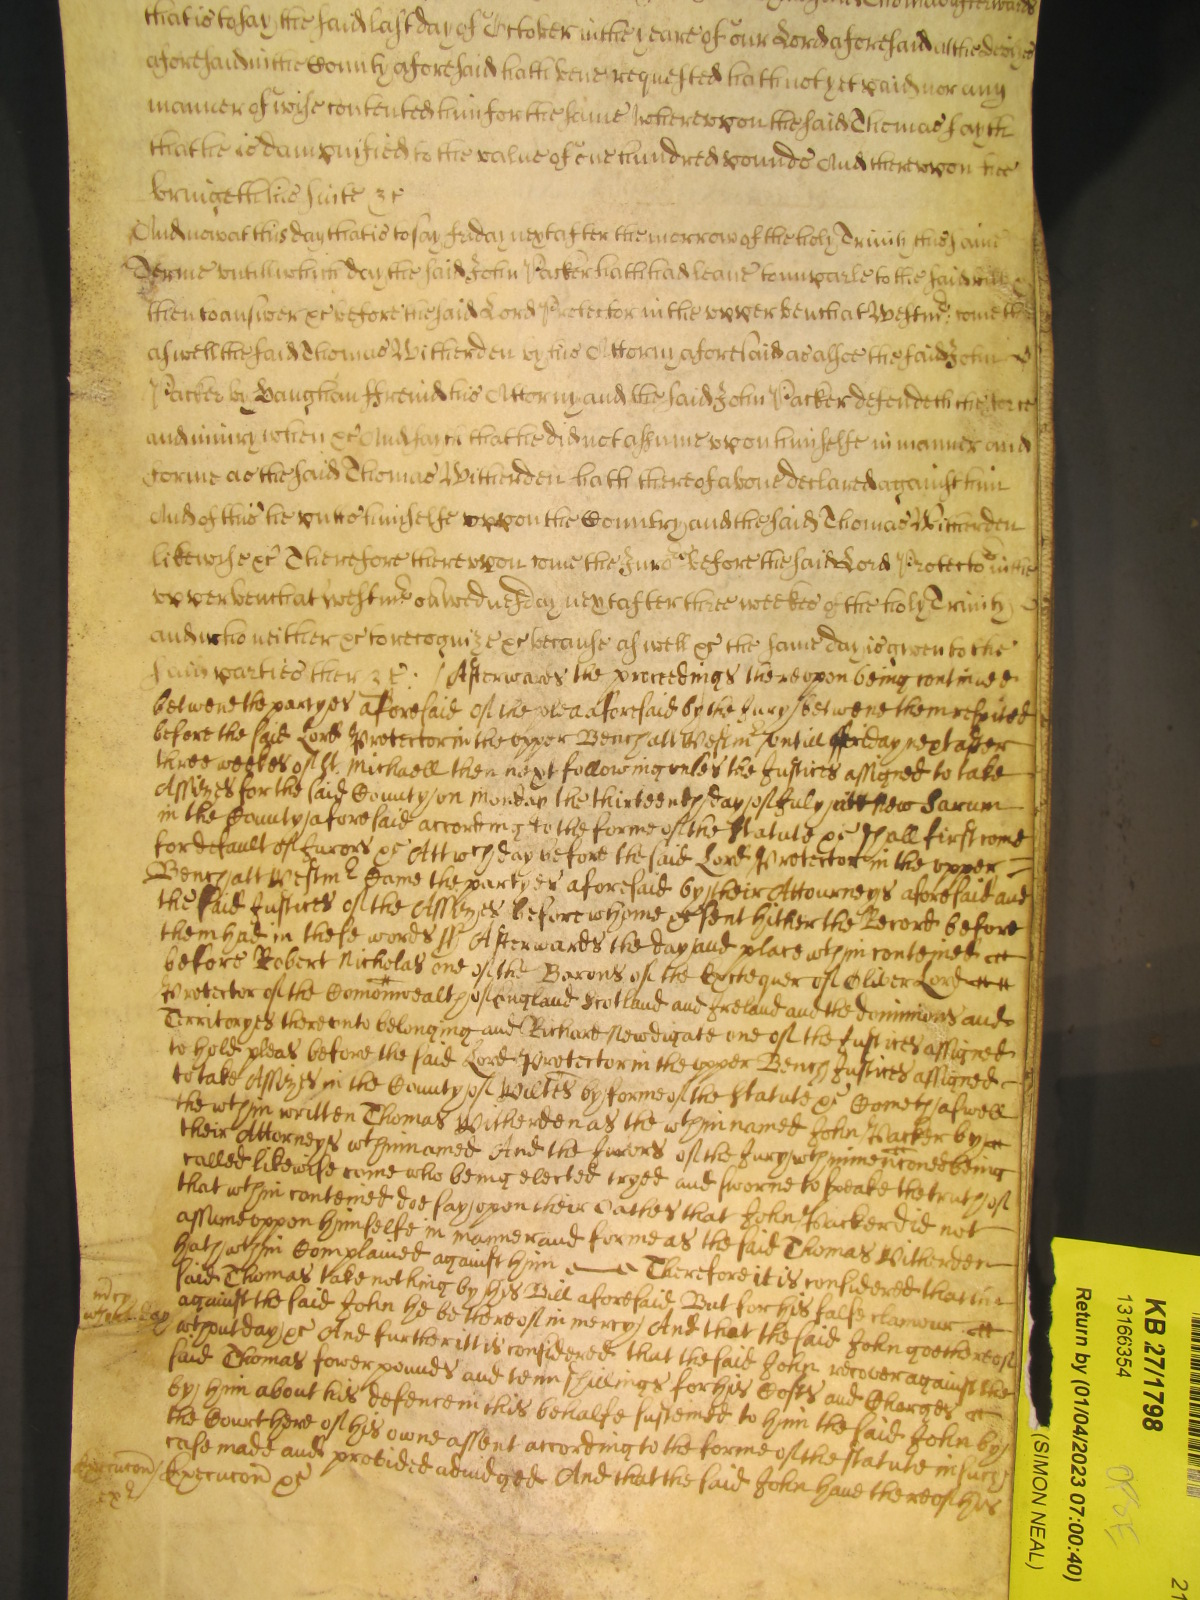 that is to say the said last day of October in the yeare of our Lord aforesaid at the devizes
aforesaid in the County aforesaid hath bene requested hath not yet paid nor any
manner of wise contented him for the same Whereuppon the said Thomas sayth
that he is dampnified to the value of one hundred pounds And thereuppon hee
bringeth his suite &c
And now at this day that is to say friday next after the morrow of the holy Trinity this same
Terme untill which day the said John Packer hath had leave to imparle to the said bill
then to answer &c before the said Lord Protector in the upper bench at Westmr come
aswell the said Thomas Witherden by his Attorny aforesaid as alsoe the said John
Packer by Vaughan his Attorny and the said John Packer defendeth the force
and iniury when &c And sayth that he did not assume uppon himselfe in manner and
forme as the said Thomas Witherden hath thereof above declared against him
And of this he putts himselfe uppon the Country and the said Thomas Witherden
likewise &c Therefore thereuppon come the Jury before the said Lord Protector in the
upper bench at Westmr on Wednesday next after three weekes of the holy Trinity
and who neither &c to recognize &c because aswell &c the same day is given to the
said parties ther &c. Afterwards the proceedings thereupon being continued
betweene the partyes aforesaid of the plea aforesaid by the Jury betweene them respited
before the said Lord Protector in the upper Bench att Westmr untill friday next after
three weekes of St. Michaell then next following unles the Justices assigned to take
Assizes for the said County on Monday the thirteenth day of July att New Sarum
in the County aforesaid according to the forme of the Statute &c shall first come
for default of Jurors &c Att wch day before the said Lord Protector in the upper
Bench att Westmr Came the partyes aforesaid by their Attourneys aforesaid and
the said Justices of the Assizes before whome &c sent hither the Record before
them had in these words ss Afterwards the day and place wthin conteined
before Robert Nicholas one of the Barons of the Exchequer of Oliver Lord
Protector of the Comonwealth of England Scotland and Ireland and the dominions and
Territoryes thereunto belonging and Richard Newdigate one of the Justices assigned
to hold pleas before the said Lord Protector in the upper Bench Justices assigned
to take Assizes in the County of Wiltes by forme of the Statute &c Cometh aswell
the wthin written Thomas Witherden as the wthin named John Packer by
their Attorneys wthinnamed And the Jurors of the Jury wthinmenconed being
called likewise come who being elected tryed and sworne to speake the truth of
that wthin conteined doe say upon their Oathes that John Packer did not
assume uppon himselfe in manner and forme as the said Thomas Witherden
hath wthin Complained against him Therefore it is considered that the
said Thomas take nothing by his Bill aforesaid But for his false clamour
against the said John he be thereof in mercy And that the said John goe thereof
wthout day &c And further itt is considered that the said John recover against the
said Thomas fower pounds and tenn shillings for his Costs and Charges
by him about his defence in this behalfe susteined to him the said John by
the Court here of his owne assent according to the forme of the Statute in such
case made and provided adiudged And that the said John have thereof his
Execucon &c
mercy
wthout day
Execucon
KB 27/1798
13166354
Return by (01/04/2023 07:00:40)
(SIMON NEAL)
21